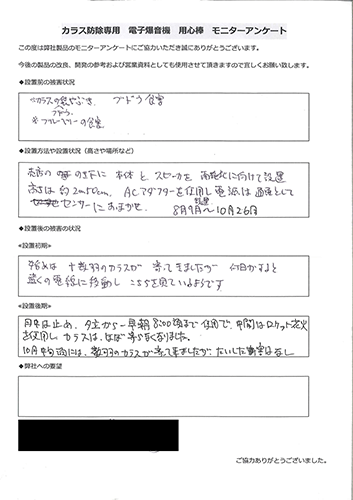 カラス防除専用 電子爆音機 用心棒 モニターアンケート
この度は弊社製品のモニターアンケートにご協力いただき誠にありがとうございます。
今後の製品の改良、開発の参考および営業資料としても使用させて頂きますので宜しくお願い致します。
◆設置前の被害状況
ブドウ食害
ブルーベリーの食害
◆設置方法や設置状況（高さや場所など）
の下に 本体と スピーカを に向けて設置
高さは 約2m50cm。ACアダプターを使用し電源は
センサーにおまかせ。
8月9日～10月26日
◆設置後の被害の状況
≪設置初期≫
始めは 十数羽のカラスが 寄ってきましたが
遠くの電線に移動し こちらを見ているようです
≪設置後期≫
夕立から一早朝8:00頃まで使用で、中間はロケット花火
を使用し カラスは、ほぼ寄らなくなりました。
10月中旬頃には、数羽のカラスが寄って来ましたが、たいした被害はなし
◆弊社への要望
ご協力ありがとうございました。